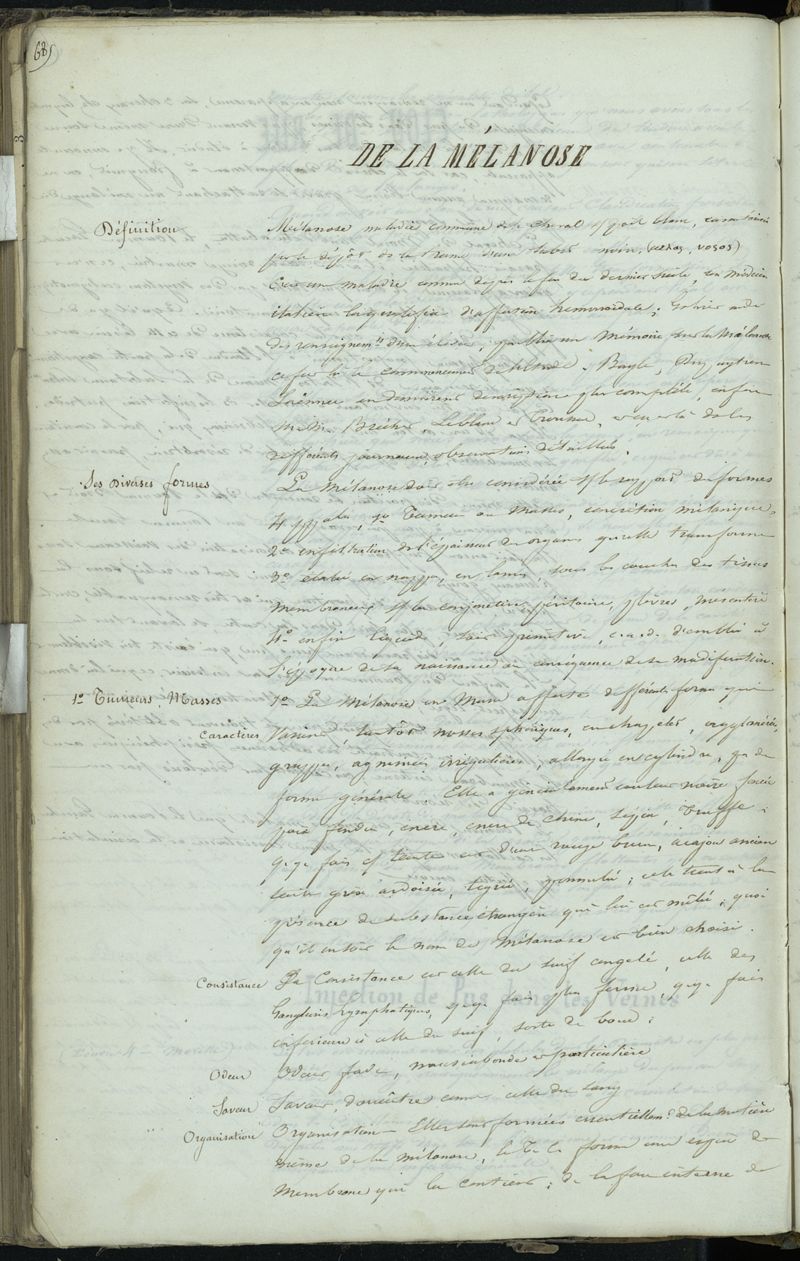 68)
DE LA MÉLANOSE
Définition
Mélanose maladie commune chez le cheval s/ poil blanc, caractérisée
par le dépôt de la trame d'une subst. noire, (μελας, νοσος)
C'est une maladie connue depuis la fin du dernier siècle, un médecin
italien la qualifia d'affection hémorroïdale; Gohier aide
des renseignem.ts d'un élève, publia un Mémoire sur la Mélanose
ce fut là le commencement de l'étude. Bayle, Dupuytren
Laënnec en donnèrent descriptions plus complète, enfin
M.M. Leblanc et Trousseau, et
différents journaux, observations détaillées.
Ses diverses formes
La mélanose doit être considérée s/ le rapport de formes
4 ppales, 1º Tumeur ou Masses, concrétion mélanique,
2º infiltration de l'épaisseur des organes qu'elle transforme
3º étalée en nappe, en lames, sous les couches des tissus
membraneux s/ la conjonctive, péritoine, plèvres, mésentère
4º enfin liquide, soit primitive, c.a.d. d'emblée à
l'époque de sa naissance ou conséquence de sa modification.
1º Tumeurs, Masses
1º La Mélanose en Masse affecte différentes formes qui
Caractères
Varient, tantôt masses sphériques, enchapelet, agglomérées,
grappes, agminées irrégulières, allongée en cylindre, pas de
forme générale. Elle a généralement couleur noire foncée
poix fondue, encre, encre de chine, sépia, truffe.
q.q. fois c/ teinte est d'un rouge brun, acajou ancien
teinte grise ardoisée, tigrée, pommelée; cela tient à la
présence de substance étrangère qui lui est mêlée; quoi
qu'il en soit le nom de Mélanose est bien choisi.
Consistance
La Consistance est celle du suif congelé, celle des
Ganglions lymphatiques, q.q. fois plus ferme, q.q. fois
inférieure à celle du suif, sorte de boue;
Injection de Pus dans les Veines
Odeur
Odeur fade, nauséabonde et particulière
Saveur
Saveur, douceâtre comme celle du sang
Organisation
Organisation - Elles sont formées essentiellem.t de la matière
même de la mélanose, le T. C. forme une espèce de
Membrane qui la contient; de la face interne de